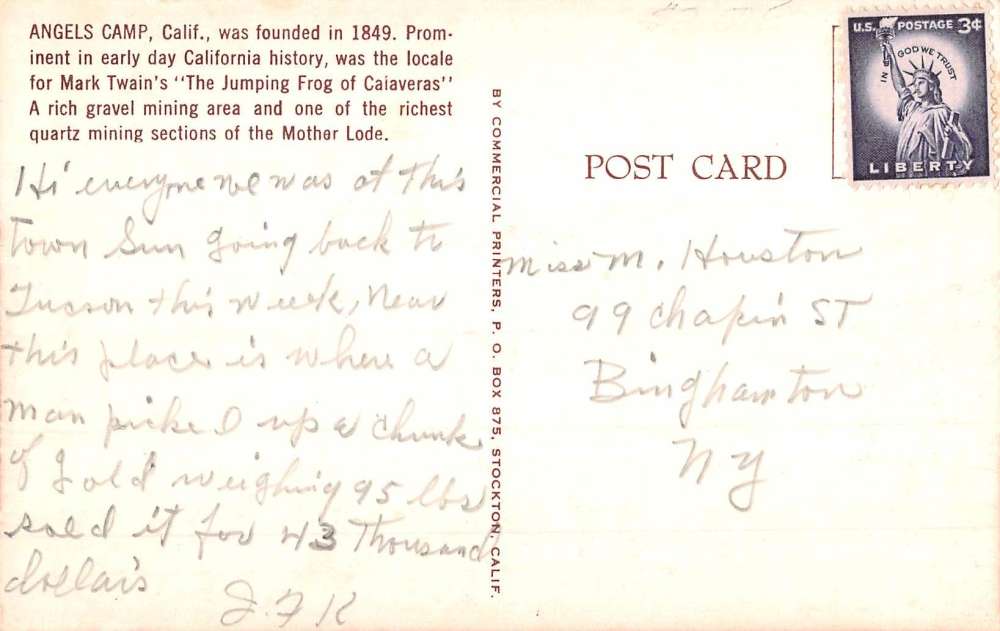 ANGELS CAMP, Calif., was founded in 1849. Prom-
inent in early day California history, was the locale
for Mark Twain's "The Jumping Frog of Calaveras"
A rich gravel mining area and one of the richest
quartz mining sections of the Mother Lode.
Hi everyone we was at this
town Sun going back to
Tucson this week, Near
this place is where a
man picked up a chunk
of gold weighing 95 lbs
sold it for 43 Thousand
dollars
J. F K
BY COMMERCIAL PRINTERS, P. O. BOX 875, STOCKTON, CALIF.
POST CARD
U.S. POSTAGE 3¢
IN GOD WE TRUST
LIBERTY
Miss M. Houston
99 Chapin ST
Binghamton
NY